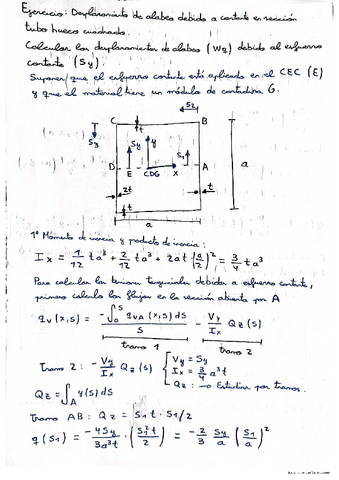 Ejercicio: Desplazamiento de alabeo debido a cortante en sección
tubo hueco cuadrado.
Calcular los desplazamientos de alabeo (Wz) debido al esfuerzo
cortante (Sy).
Suponer que el esfuerzo cortante está aplicado en el CEC (E)
y que el material tiene un módulo de cortadura G.
S2
C t B
Sy Sy S1
D E CDG x A a
2t t
t
a
1º Momento de inercia y producto de inercia:
Ix = 1/12 ta³ + 2/12 ta³ + 2at (a/2)² = 3/4 ta³
Para calcular las tensiones tangenciales debidas a esfuerzo cortante,
primero calculo los flujos en la sección abierta por A
qv(x,s) = -∫₀ˢ qvA(x,s) ds / S - Vy/Ix Qz(s)
tramo 1 tramo 2
Tramo 2: -Vy/Ix Qz(s) { Vy = Sy
Ix = 3/4 a³t
Qz: → Estudiar por tramos.
Qz = ∫A y(s) ds
Tramo AB: Qz = S1 t · S1/2
q(S1) = -4Sy/3a³t · (S1² t/2) = -2/3 Sy/a (S1/a)²